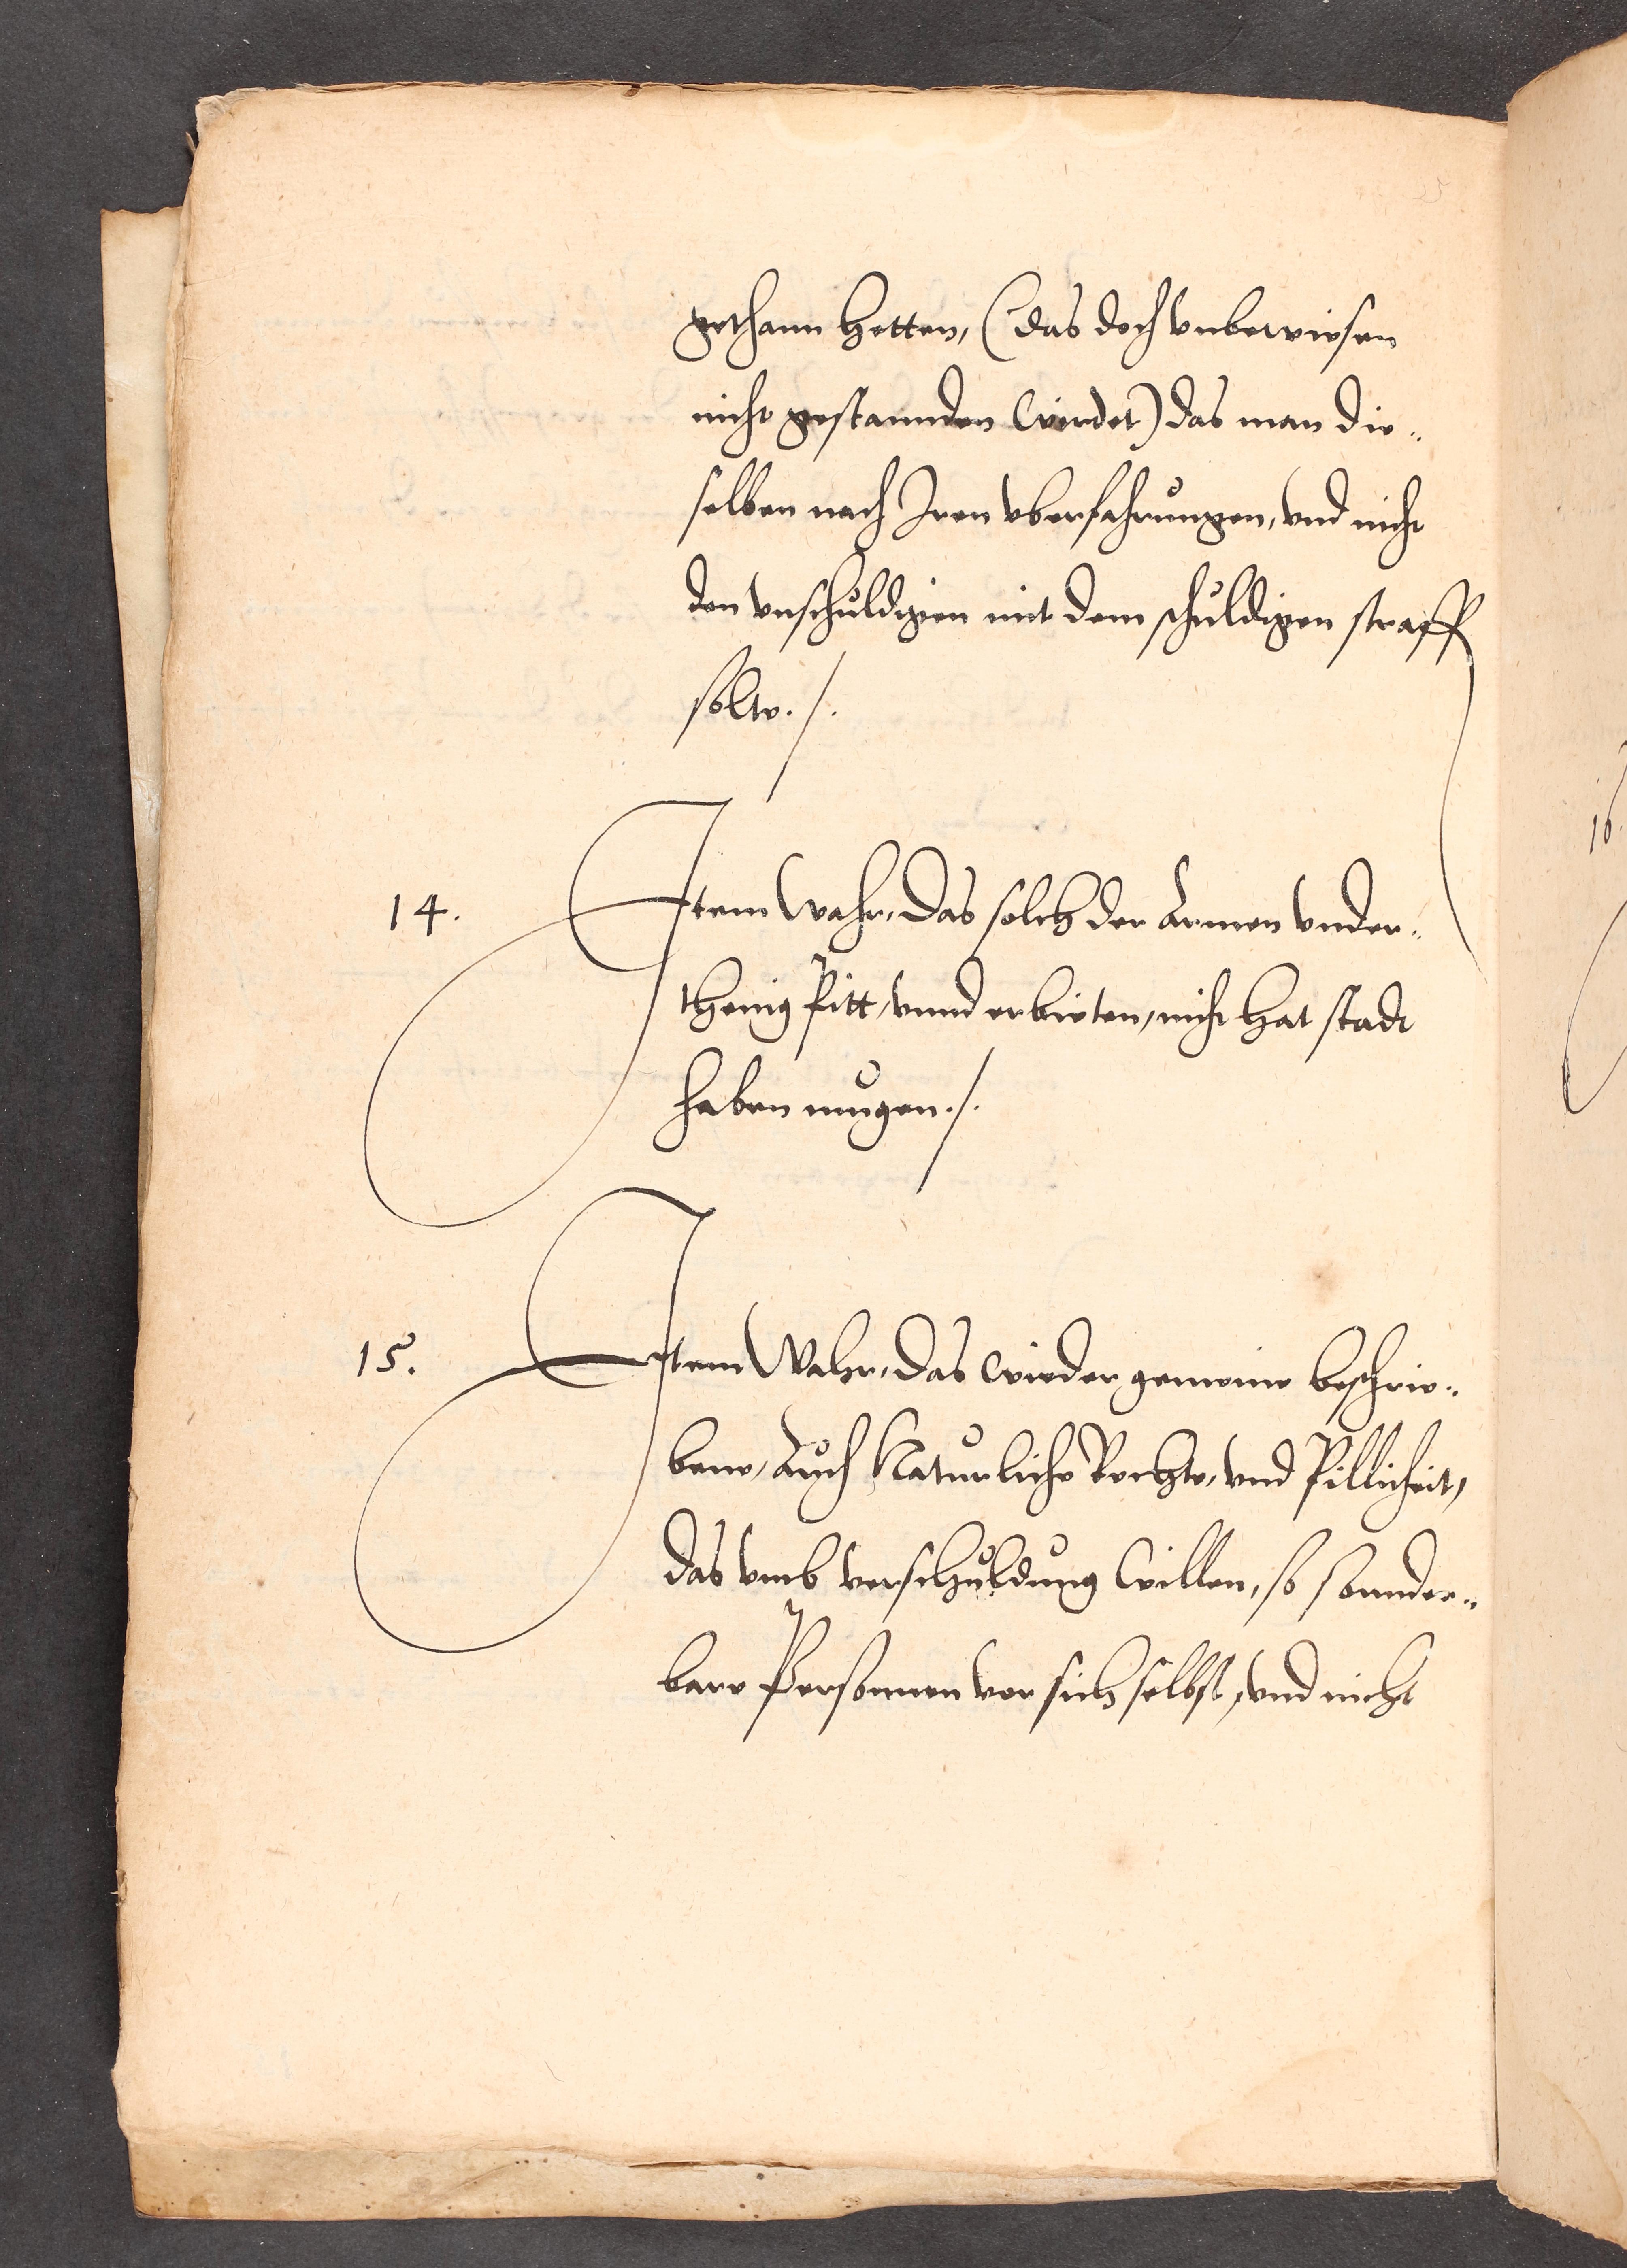 gethann hetten, (das doch vnbewiesen
nicht gestannden wirdet) das man die„
selben nach Iren vberfahrungen, vnd nicht
den vnschuldigen mit dem schuldigen straff
solte./.
14. Item wahr, das solch der Armen vnder„
thenig Pitt, vnnd erbieten, nicht hat stadt
haben mugen./.
15. Item Wahr, das wieder gemeine beschrie„
bene, Auch Naturliche Rechte, vnd Pillicheit,
das vmb verschuldung willen, so sonnder„
bare Personnen vor sich selbst, vnd nicht